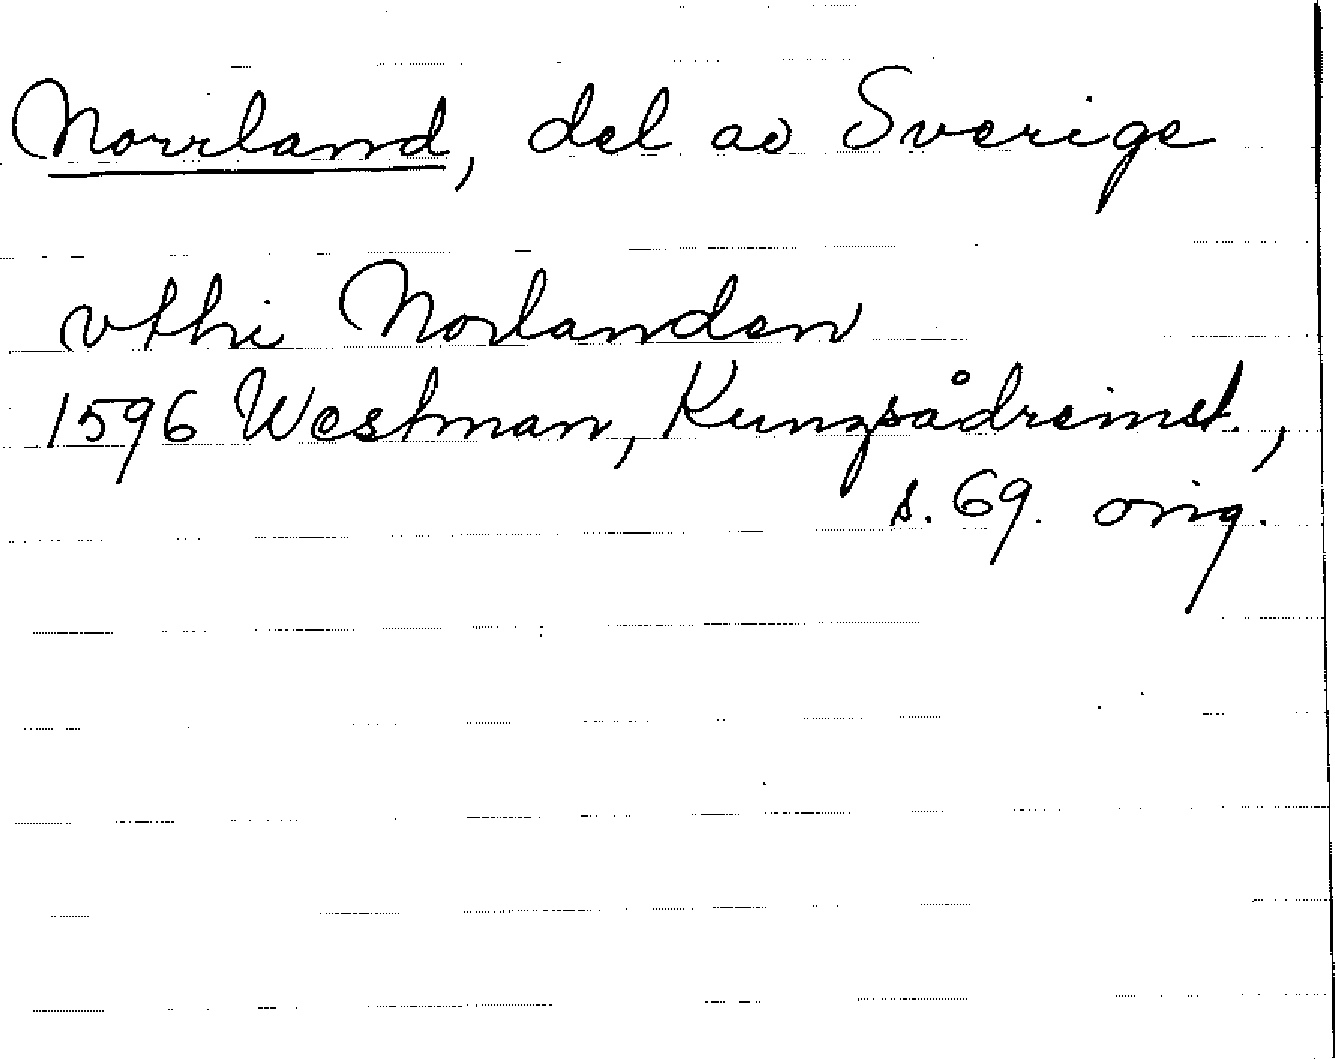 Norrland, del av Sverige
vthi Norlanden
1596 Westman, Kungsådreinst.,
s. 69. orig.